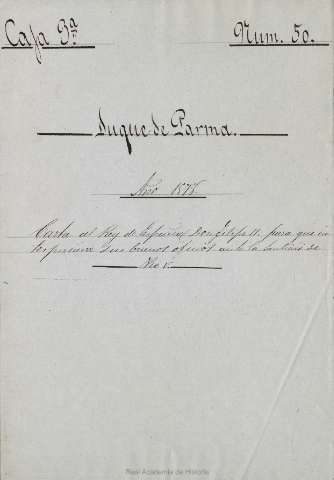 Caja 3ª Num. 50.
Duque de Parma.
Año 1575.
Carta al Rey de España Don Felipe II. para que in
terponga sus buenos oficios ante la Santidad de
Pio V.
Real Academia de Historia